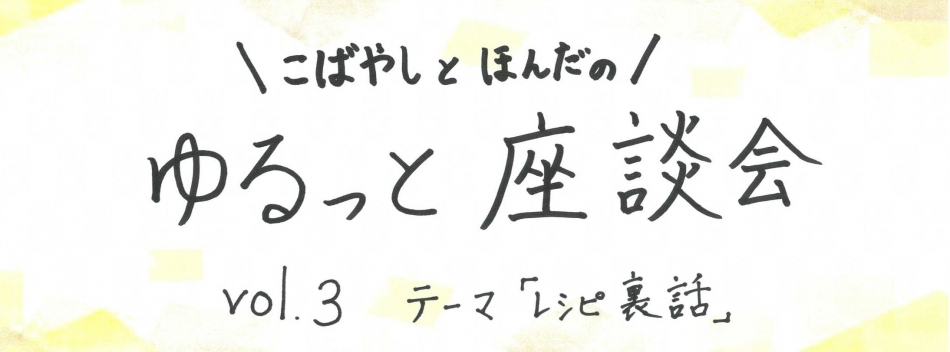 \ こばやしとほんだの /
ゆるっと座談会
vol.3 テーマ「レシピ裏話」